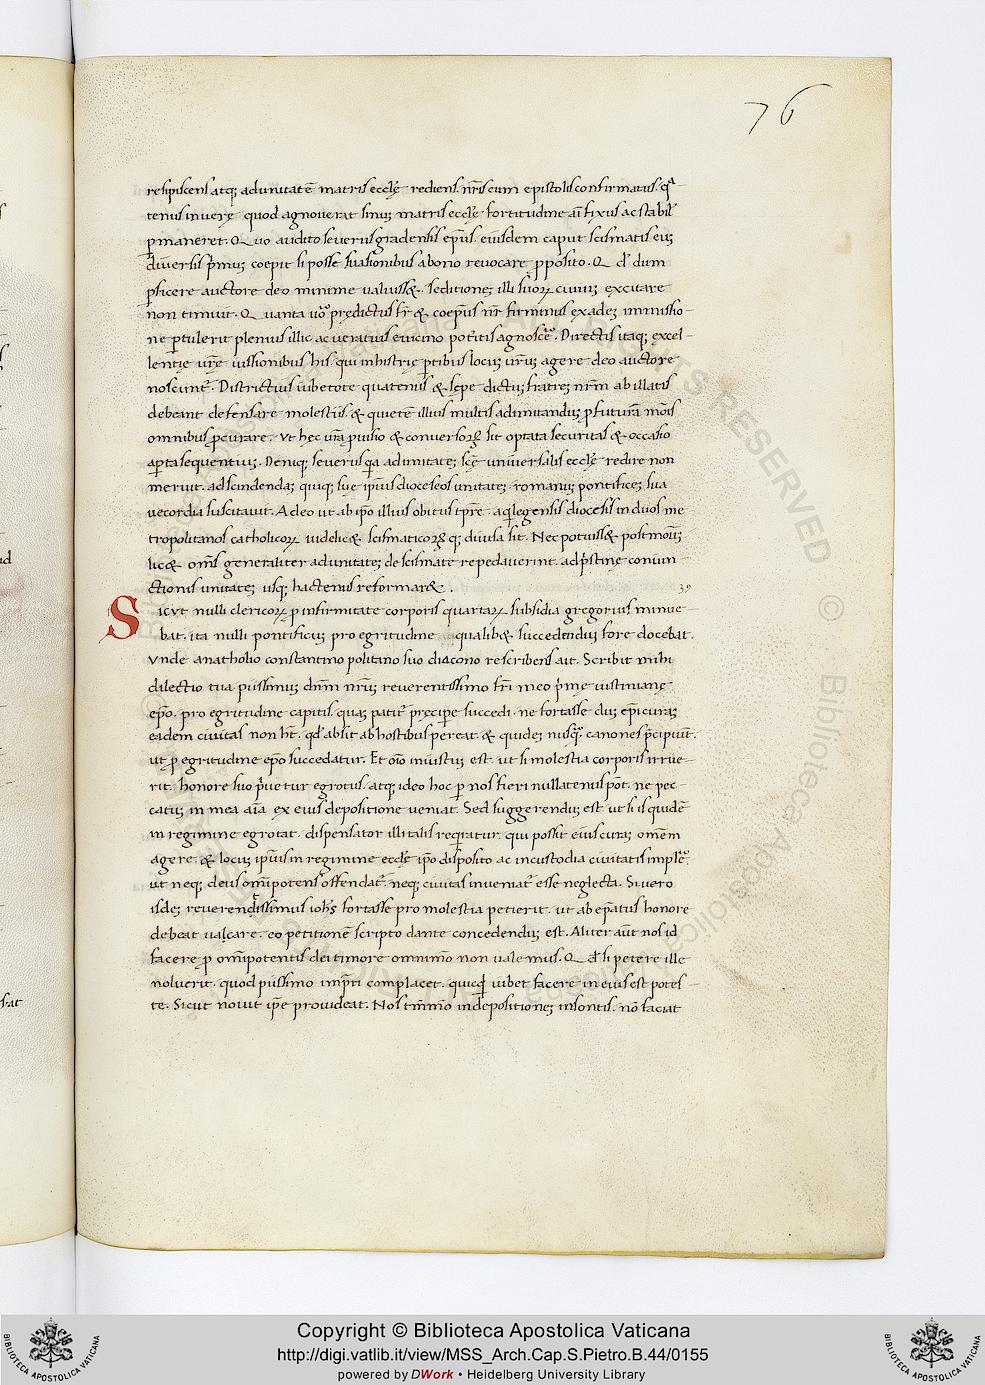 76
resipiscens atq; ad unitatē matris eccl̄ę rediens. nr̄is eum epistolis confirmatus. q̄
tenus in verę quod agnoverat sinus matris eccl̄ę fortitudine aĩ fixus ac stabil̄
p̄maneret. Quo audito severus gradensis ep̄us. eiusdem caput scismatis eū
diversis p̄mus coepit si posse suasionibus a bono revocare p̄posito. Qd̄ dum
p̄ficere auctore deo minime valuiss&. seditionē illi suoꝝ civiū excitare
non timuit. Quanta v̊o prędictus fr̄ & coep̄us nr̄ firminus ex adeȝ immissio-
ne p̄tulerit plenius illic ac veratius e vicino pot̄itis agnosc̄e. Directis itaq; excel-
lentię vr̄ę iussionibus his. qui in histrię p̄tibus locū vr̄um agere deo auctore
noscunt̄. Districtius iubetote quatenus & sępe dictū fratrē nr̄m ab illatis
debeant defensare molestiis. & quietē illius multis ad imitandū p̄futurā mōis
omnibus p̄curare. Ut hec vr̄a p̄visio & conversoꝝ sit optata securitas & occasio
ap̄ta sequentiū. Deniq; severus q̄a ad unitatē sc̄ę universalis eccl̄ę redire non
meruit. ad scindendā quiq; suę ipsius dioceseos unitatē romanus pontifices sua
vecordia suscitavit. Adeo ut ab ip̄o illius obitus tp̄re. aq̄legensis diocesis in duos me
tropolitanos catholicoꝝ videlic& scismaticoꝝq; divisa sit. Nec potuiss& postmodū
lic& om̄s generaliter ad unitatē de scismate repedaverint. ad p̄stinę coniun
ctionis unitatē usq; hactenus reformar&.
39
Sicut nulli clericoꝝ p̄ infirmitate corporis quartaꝝ subsidia gregorius minue-
bat. ita nulli pontificū pro egritudine qualib& succedendū fore docebat.
Unde anatholio constantino politano suo diacono rescribens ait. Scribit mihi
dilectio tua piissimū dn̄m nr̄m reverentissimo fr̄i meo p̄mę iustinianę
ep̄o. pro egritudine capitis. quā patit̄ pręcipe succedi. ne fortasse dū ep̄i curā
eadem civitas non h̄t. qd̄ absit ab hostibus pereat. & quidē nusq̄ canones p̄cipiunt.
ut p̄ egritudine ep̄o succedatur. Et om̄o iniustū est. ut si molestia corporis irrue-
rit. honore suo p̄vetur egrotus. atq; ideo hoc p̄ nos fieri nullatenus pōt. ne pec-
catū in mea aīa ex eius depositione veniat. Sed suggerendū est ut si is qui dē
in regimine egrotat. dispensator illi talis req̄ratur. qui possit eius curā omēm
agere. & locū ipsius in regimine eccl̄ę ip̄o disposito ac in custodia civitatis impl̄e.
ut neq; deus om̄ipotens offendat̄. neq; civitas inveniat̄ esse neglecta. Si vero
isdē reverendissimus ioh̄s fortasse pro molestia petierit. ut ab ep̄atus honore
debeat vacare. eo petitionē scripto dante concedendū est. Aliter aūt nos id
facere p̄ om̄ipotentis dei timore omnimo non valemus. Qd̄ si petere ille
noluerit. quod piissimo imp̄rti complacet. quicq̄d iubet facere in eius est potes-
te. Sicut novit ip̄e provideat. Nos tm̄mo in depositionē insontis. nō faciat
Copyright © Biblioteca Apostolica Vaticana
http://digi.vatlib.it/view/MSS_Arch.Cap.S.Pietro.B.44/0155
powered by DWork • Heidelberg University Library